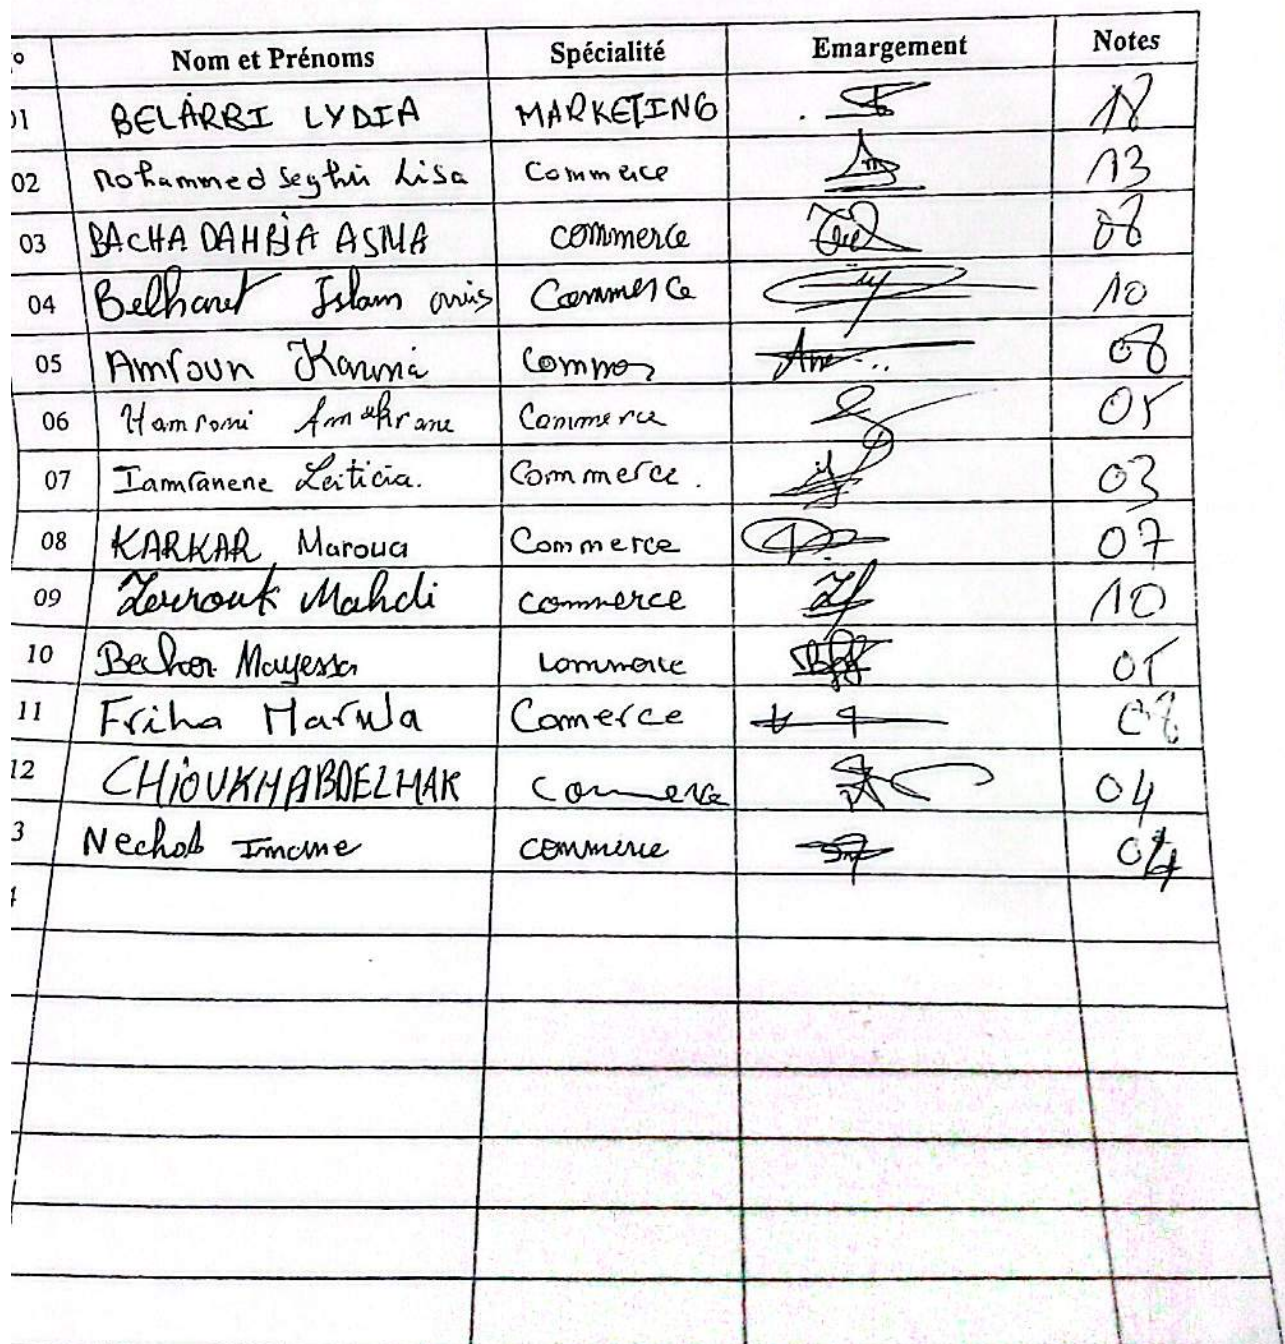 ° Nom et Prénoms Spécialité Emargement Notes
01 BELARBI LYDIA MARKETING 18
02 Mohammed Seghir Lisa Commerce 13
03 BACHA DAHBIA ASMA commerce 08
04 Islam Commerce 10
05 Amroun Karima 08
06 Commerce 05
07 Iamranene Leiticia. Commerce. 03
08 KARKAR Maroua Commerce 07
09 Zerrouk Mahdi commerce 10
10 Mayessa commerce 05
11 Friha Comerce 08
12 CHIOUKH ABDELHAK Commerce 04
3 Imane commerce 04
4